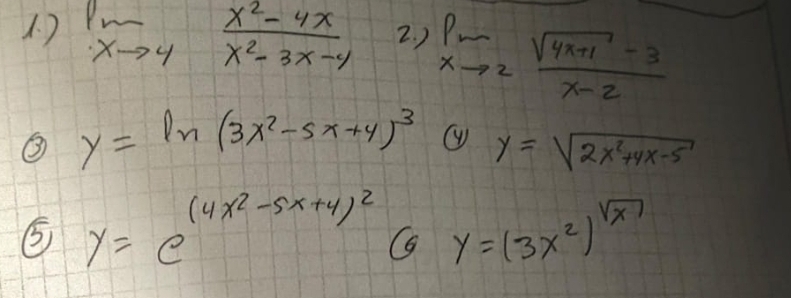 1.) lim x→4 (x² - 4x)/(x² - 3x - 4) 2.) lim x→2 (√(4x+1) - 3)/(x - 2)
③ y = ln (3x² - 5x + 4)³ ④ y = √(2x² + 4x - 5)
⑤ y = e^((4x² - 5x + 4)²) ⑥ y = (3x²)^(√x)